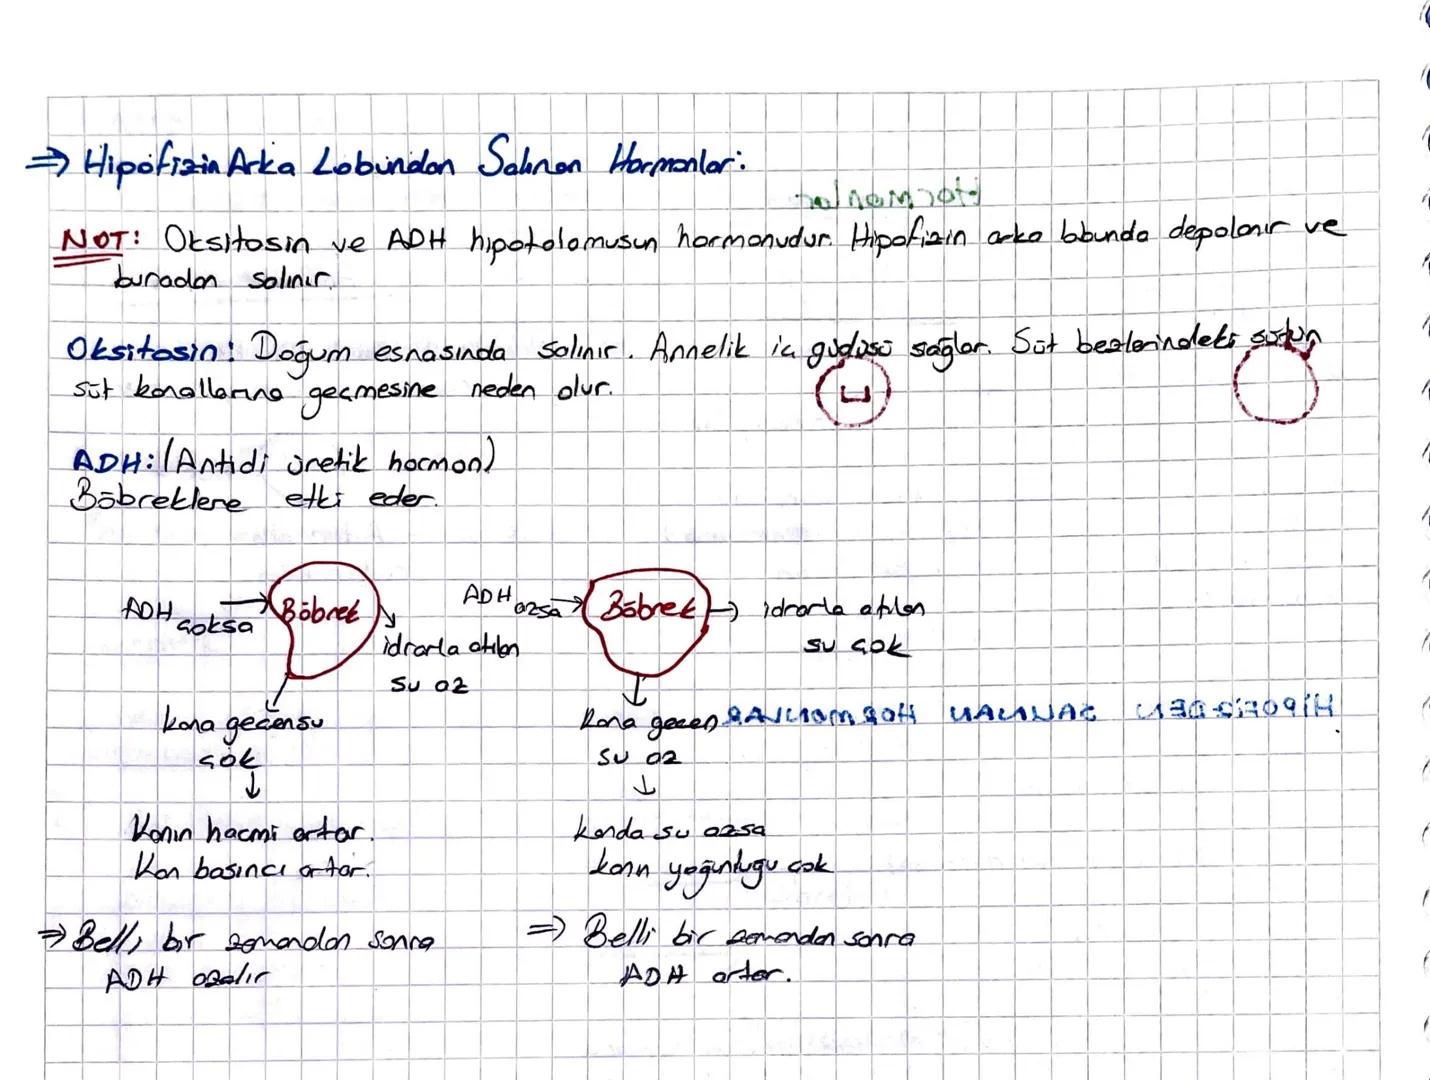 ⇒ Hipofizin Arka Lobundan Salınan Hormonlar:
Hormonlar
NOT: Oksitosin ve ADH hipotolamusun hormonudur. Hipofizin arka lobunda depolanır ve
buradan salınır.
Oksitosin: Doğum esnasında salınır. Annelik iç güdüsü sağlar. Süt bezlerindeki sütün
süt kanallarına geçmesine neden olur.
ADH: (Antidi üretik hormon)
Böbreklere etki eder.
ADH çoksa → Böbrek
idrarla atılan
su az
kana geçen su
çok
↓
Kanın hacmi artar.
Kan basıncı artar.
⇒ Belli bir zamandan sonra
ADH azalır
ADH azsa → Böbrek → idrarla atılan
su çok
↓
Kana geçen
su az
↓
kanda su azsa
kanın yoğunlugu çok
⇒ Belli bir zamandan sonra
ADH artar.
HİPOFİZDEN SALINAN HORMONLAR